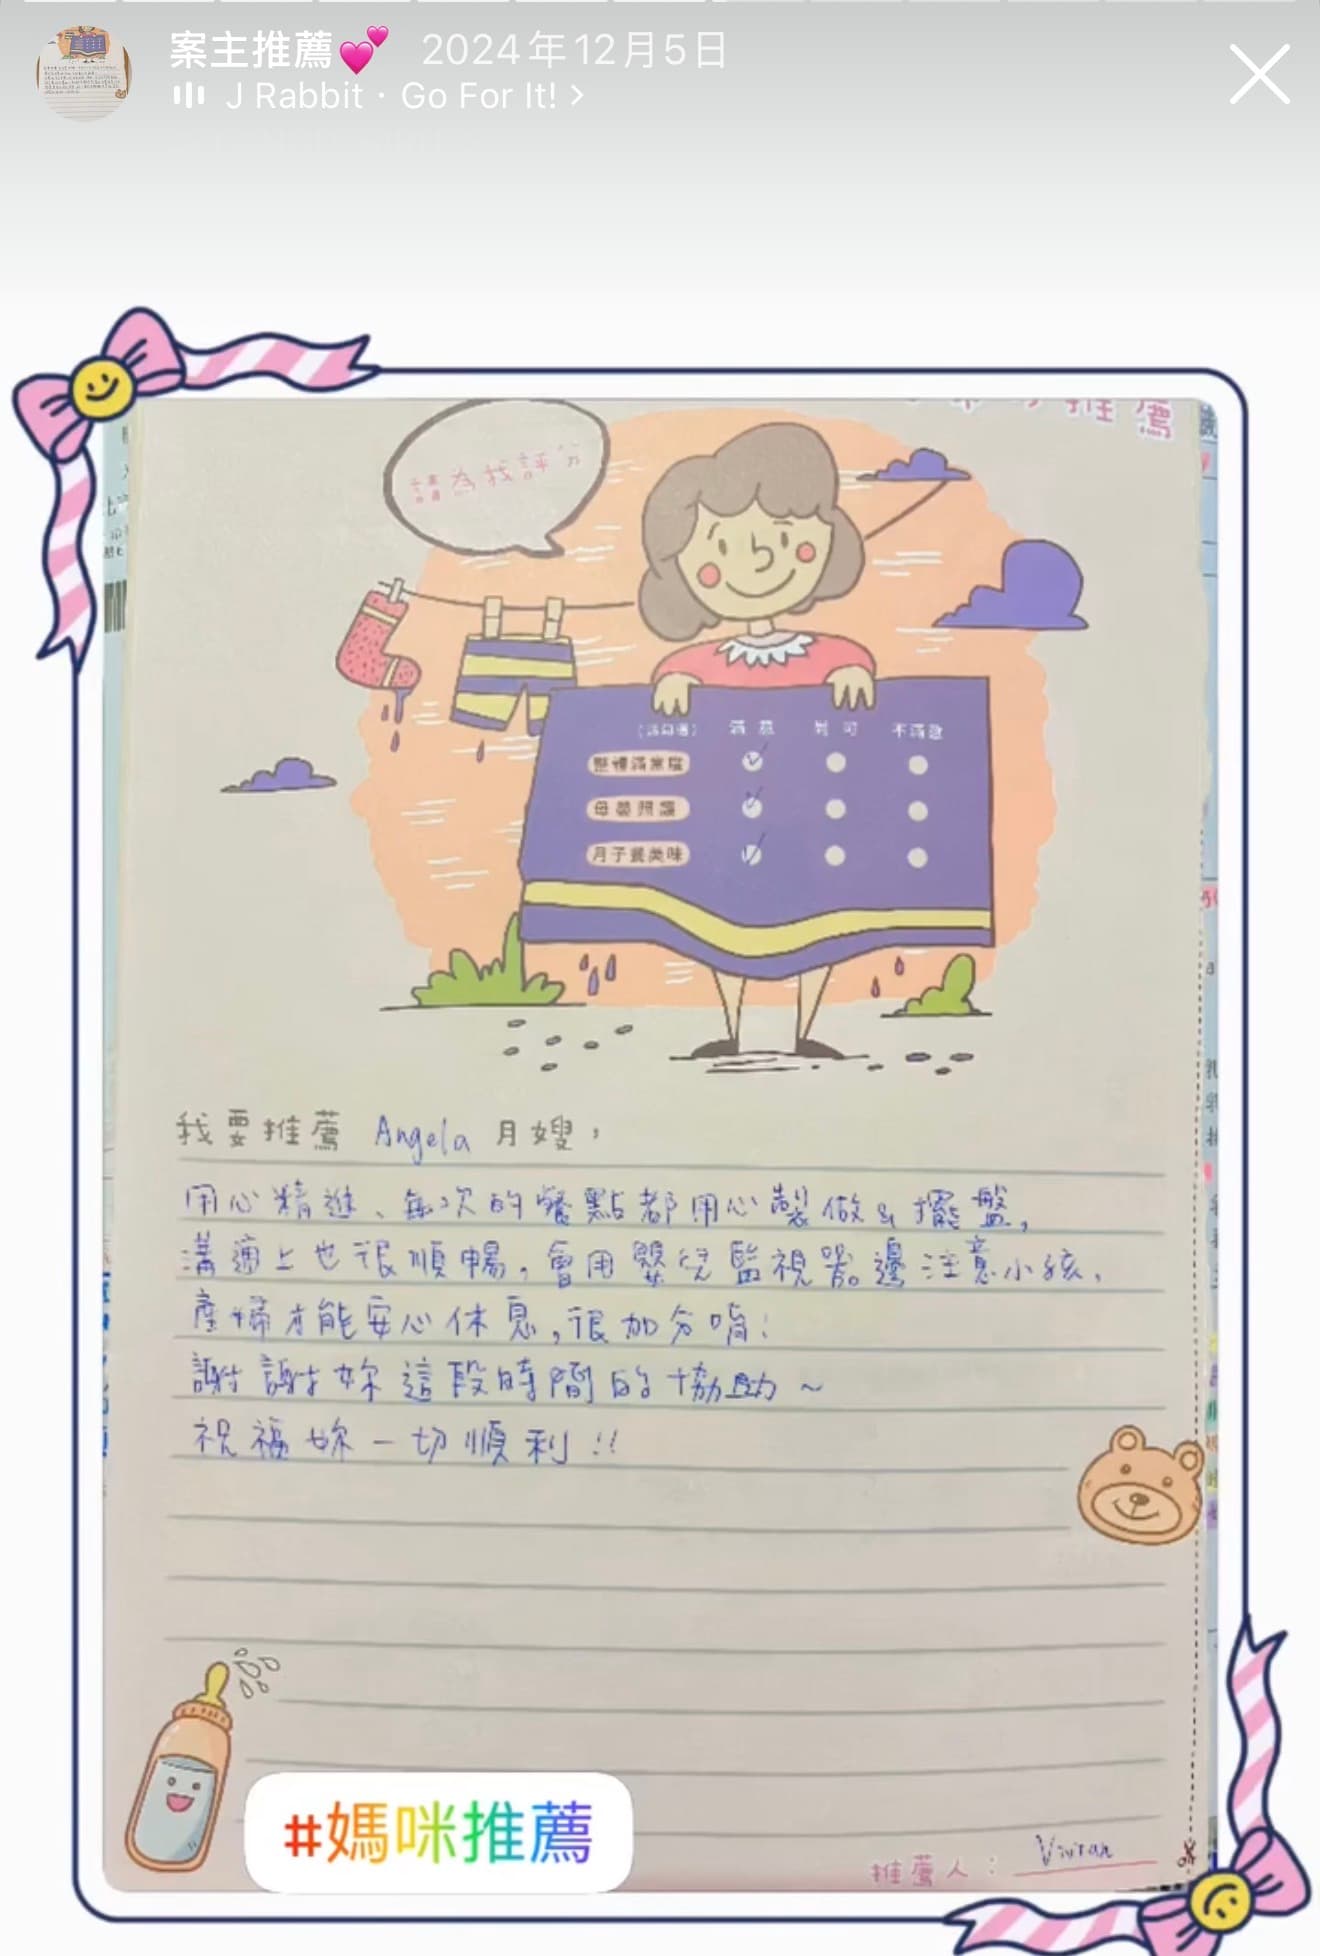 案主推薦💕 2024年12月5日
J Rabbit · Go For It! >
推薦
請為我評分
(請勾選) 滿意 尚可 不滿意
整體滿意度
母嬰照護
月子餐美味
我要推薦 Angela 月嫂，
用心精進、每次的餐點都用心製做&擺盤,
溝通上也很順暢,會用嬰兒監視器邊注意小孩,
產婦才能安心休息,很加分唷!
謝謝妳這段時間的協助~
祝福妳一切順利!!
#媽咪推薦
推薦人：Vivian